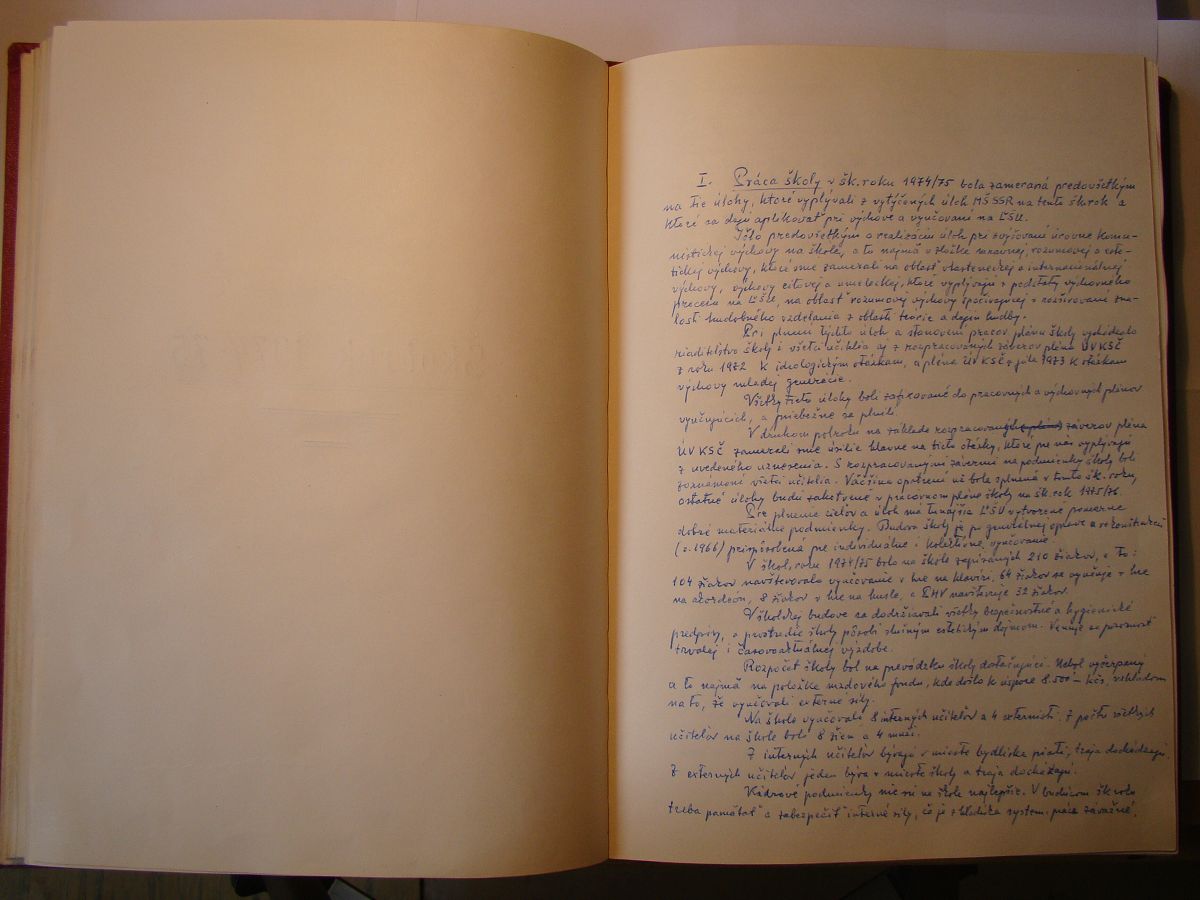 I. Práca školy v šk. roku 1974/75 bola zameraná predovšetkým
na tie úlohy, ktoré vyplývali z vytýčených úloh MŠ SSR na tento šk. rok a
ktoré sa dajú aplikovať pri výchove a vyučovaní na ĽŠU.
Išlo predovšetkým o realizáciu úloh pri zvyšovaní úrovne komu-
nistickej výchovy na škole, a to najmä v zložke mravnej, rozumovej a este-
tickej výchovy, ktoré sme zamerali na oblasť vlasteneckej a internacionálnej
výchovy, výchovy citovej a umeleckej, ktoré vyplývajú z podstaty výchovného
procesu na ĽŠU, na oblasť rozumovej výchovy spočívajúcej v rozširovaní zna-
lostí hudobného vzdelania z oblasti teórie a dejín hudby.
Pri plnení týchto úloh a stanovení pracov. plánu školy vychádzalo
riaditeľstvo školy i všetci učitelia aj z rozpracovaných záverov pléna ÚV KSČ
z roku 1972 k ideologickým otázkam, a pléna ÚV KSČ z júla 1973 k otázkam
výchovy mladej generácie.
Všetky tieto úlohy boli zafixované do pracovných a výchovných plánov
vyučujúcich, a priebežne sa plnili.
V druhom polroku na základe rozpracovaných záverov pléna
ÚV KSČ zamerali sme úsilie hlavne na tieto otázky, ktoré pre nás vyplývajú
z uvedeného uznesenia. S rozpracovanými závermi na podmienky školy boli
zoznámení všetci učitelia. Väčšina opatrení už bola splnená v tomto šk. roku,
ostatné úlohy budú zakotvené v pracovnom pláne školy na šk. rok 1975/76.
Pre plnenie cieľov a úloh má tunajšia ĽŠU vytvorené pomerne
dobré materiálne podmienky. Budova školy je po generálnej oprave a rekonštrukcii
(r. 1966) prispôsobená pre individuálne i kolektívne vyučovanie.
V škol. roku 1974/75 bolo na škole zapísaných 210 žiakov, a to:
104 žiakov navštevovalo vyučovanie v hre na klavíri, 64 žiakov sa vyučuje v hre
na akordeón, 8 žiakov v hre na husle, a PHV navštevuje 32 žiakov.
V školskej budove sa dodržiavali všetky bezpečnostné a hygienické
predpisy, a prostredie školy pôsobí slušným estetickým dojmom. Venuje sa pozornosť
trvalej i časovoaktuálnej výzdobe.
Rozpočet školy bol na prevádzku školy dotačujúci. Nebol vyčerpaný
a to najmä na položke mzdového fondu, kde došlo k úspore 8.500.- Kčs, vzhľadom
na to, že vyučovali externé sily.
Na škole vyučovali 8 interných učiteľov a 4 externisti. Z počtu všetkých
učiteľov na škole bolo 8 žien a 4 muži.
Z interných učiteľov bývajú v mieste bydliska piati, traja dochádzajú.
Z externých učiteľov jeden býva v mieste školy a traja dochádzajú.
Kádrové podmienky nie sú na škole najlepšie. V budúcom šk. roku
treba pamätať a zabezpečiť interné sily, čo je z hľadiska system. práce závažné.